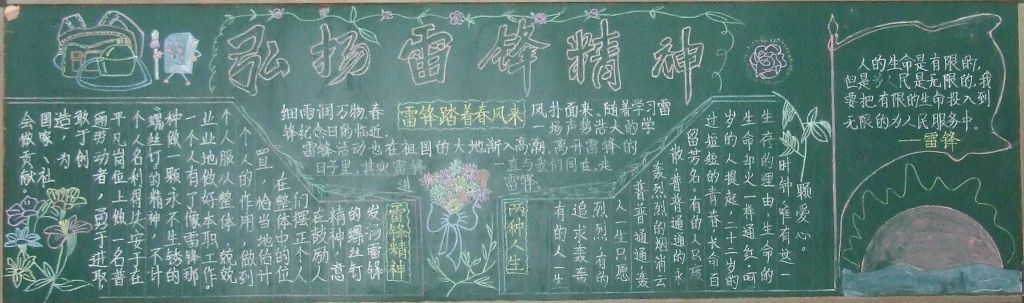 弘扬雷锋精神
雷锋踏着春风来
细雨润万物,春
风扑面来。随着学习雷
锋纪念日的临近,
一场声势浩大的学
雷锋活动也在祖国的大地渐入高潮。离开雷锋的
日子里,其实雷锋
一直与我们同在。走
近
雷锋。
雷锋精神
发扬雷锋
的螺丝钉
精神,意
在鼓励人
们摆正个人
在整体中的位
置,恰当地估计
个人的作用,做到
个人服从整体,兢兢
业业地做好本职工作。
一个人有了像雷锋那
种做一颗永不生锈的
“螺丝钉”的精神,不计
个人名利得失,安于在
平凡岗位上做一名普
通劳动者,勇于进取,
敢于创
造,为
国家、社
会做贡献。
两种人生
一颗爱心。
时钟,唯有这一
生存的理由,生命的
生命却火一样通红,呵
岁的人提起,二十二岁的
过短短的青春,长命百
留芳名。有的人只度
散,普普通通的永
轰烈烈的烟消云
普普通通,轰
人一生只愿
烈烈,有的
追求轰轰
有的人一生
人的生命是有限的,
但是为人民是无限的,我
要把有限的生命投入到
无限的为人民服务中。
——雷锋